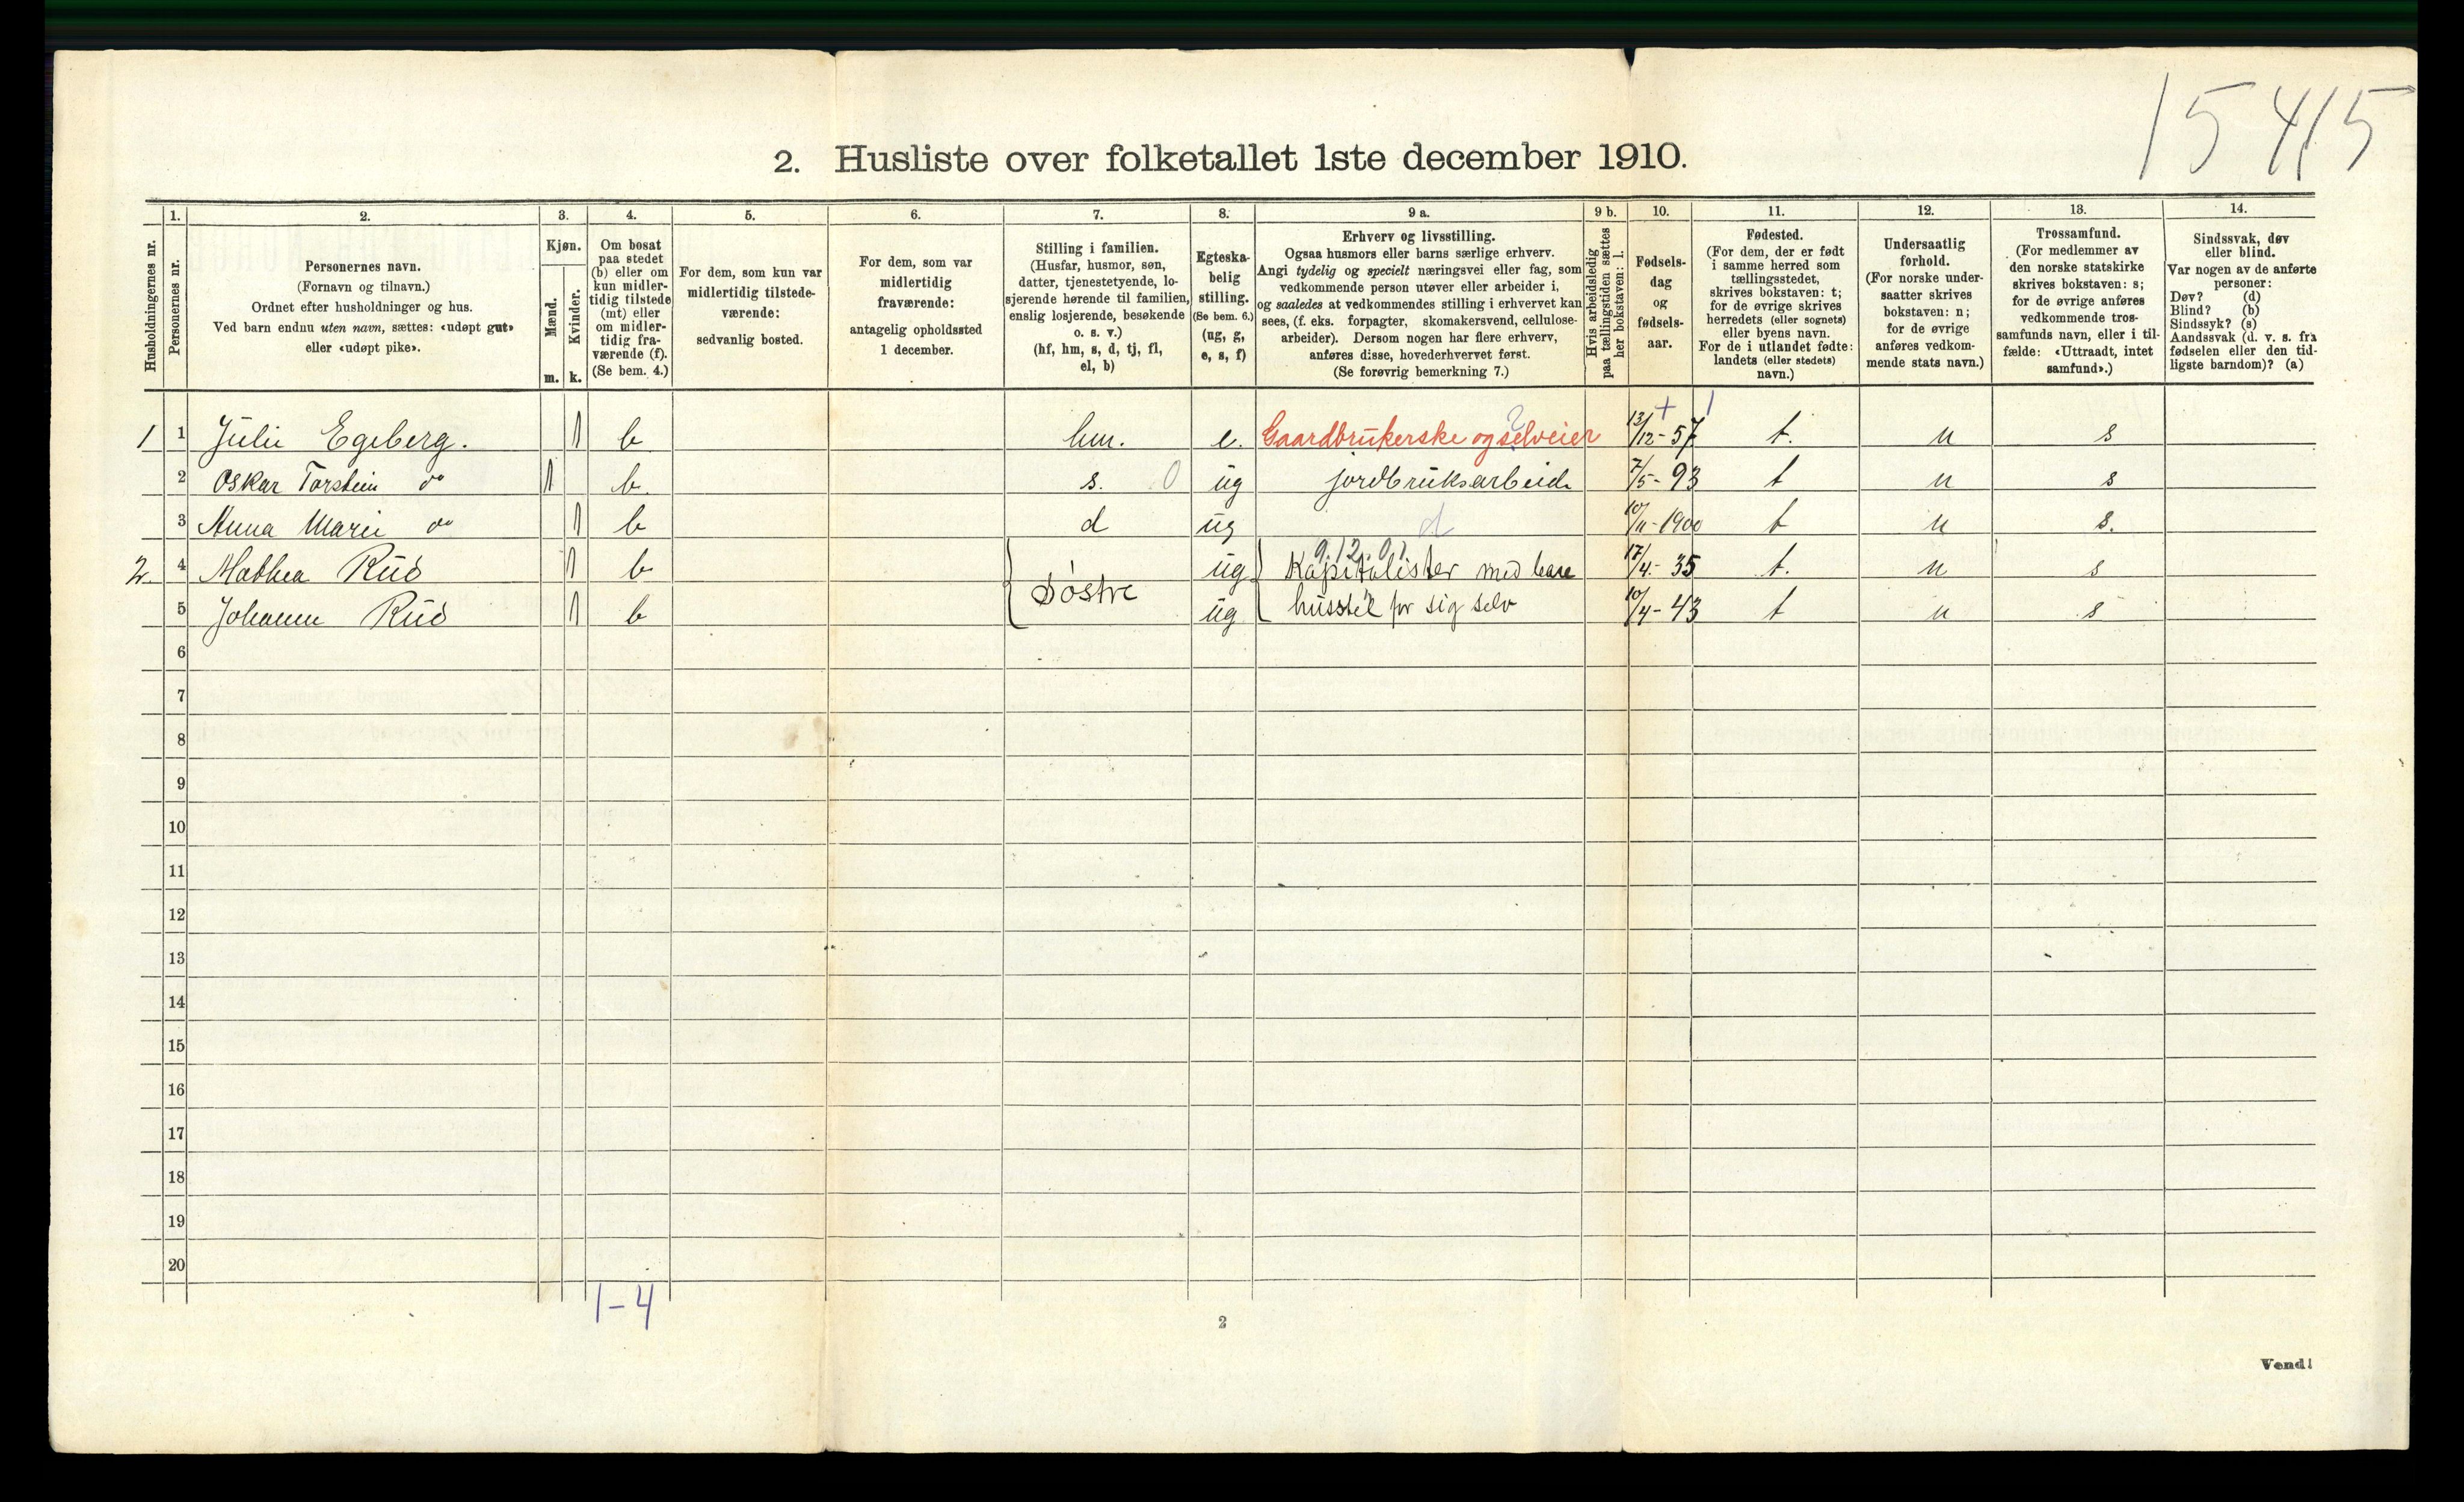 15 415
2. Husliste over folketallet 1ste december 1910.
Husholdningernes nr.
1.
Personernes nr.
2.
Personernes navn.
(Fornavn og tilnavn.)
Ordnet efter husholdninger og hus.
Ved barn endnu uten navn, sættes: «udøpt gut»
eller «udøpt pike».
3.
Kjøn.
Mænd.
Kvinder.
m. k.
4.
Om bosat
paa stedet
(b) eller om
kun midler-
tidig tilstede
(mt) eller
om midler-
tidig fra-
værende (f).
(Se bem. 4.)
5.
For dem, som kun var
midlertidig tilstede-
værende:
sedvanlig bosted.
6.
For dem, som var
midlertidig
fraværende:
antagelig opholdssted
1 december.
7.
Stilling i familien.
(Husfar, husmor, søn,
datter, tjenestetyende, lo-
sjerende hørende til familien,
enslig losjerende, besøkende
o. s. v.)
(hf, hm, s, d, tj, fl,
el, b)
8.
Egteska-
belig
stilling.
(Se bem. 6.)
(ug, g,
e, s, f)
9 a.
Erhverv og livsstilling.
Ogsaa husmors eller barns særlige erhverv.
Angi tydelig og specielt næringsvei eller fag, som
vedkommende person utøver eller arbeider i,
og saaledes at vedkommendes stilling i erhvervet kan
sees, (f. eks. forpagter, skomakersvend, cellulose-
arbeider). Dersom nogen har flere erhverv,
anføres disse, hovederhvervet først.
(Se forøvrig bemerkning 7.)
9 b.
Hvis arbeidsledig
paa tællingstiden sættes
her bokstaven: l.
10.
Fødsels-
dag
og
fødsels-
aar.
11.
Fødested.
(For dem, der er født
i samme herred som
tællingsstedet,
skrives bokstaven: t;
for de øvrige skrives
herredets (eller sognets)
eller byens navn.
For de i utlandet fødte:
landets (eller stedets)
navn.)
12.
Undersaatlig
forhold.
(For norske under-
saatter skrives
bokstaven: n;
for de øvrige
anføres vedkom-
mende stats navn.)
13.
Trossamfund.
(For medlemmer av
den norske statskirke
skrives bokstaven: s;
for de øvrige anføres
vedkommende tros-
samfunds navn, eller i til-
fælde: «Uttraadt, intet
samfund».)
14.
Sindssvak, døv
eller blind.
Var nogen av de anførte
personer:
Døv? (d)
Blind? (b)
Sindssyk? (s)
Aandssvak (d. v. s. fra
fødselen eller den tid-
ligste barndom)? (a)
1 1 Julie Egeberg. 1 b hm. e. Gaardbrukerske og selveier 13/12-57 t. n s
2 Oskar Torstein do 1 b s. 0 ug jordbruksarbeide 7/5-93 t n s
3 Anna Marie do 1 b d ug d 10/11-1900 t n s.
9.12.01
2. 4 Mathea Rud 1 b Søstre ug Kapitalister med bare 17/4-35 t. n s
5 Johanne Rud 1 b ug husstel for sig selv 10/4-43 t n s
6
7
8
9
10
11
12
13
14
15
16
17
18
19
20
1-4
2
Vend!